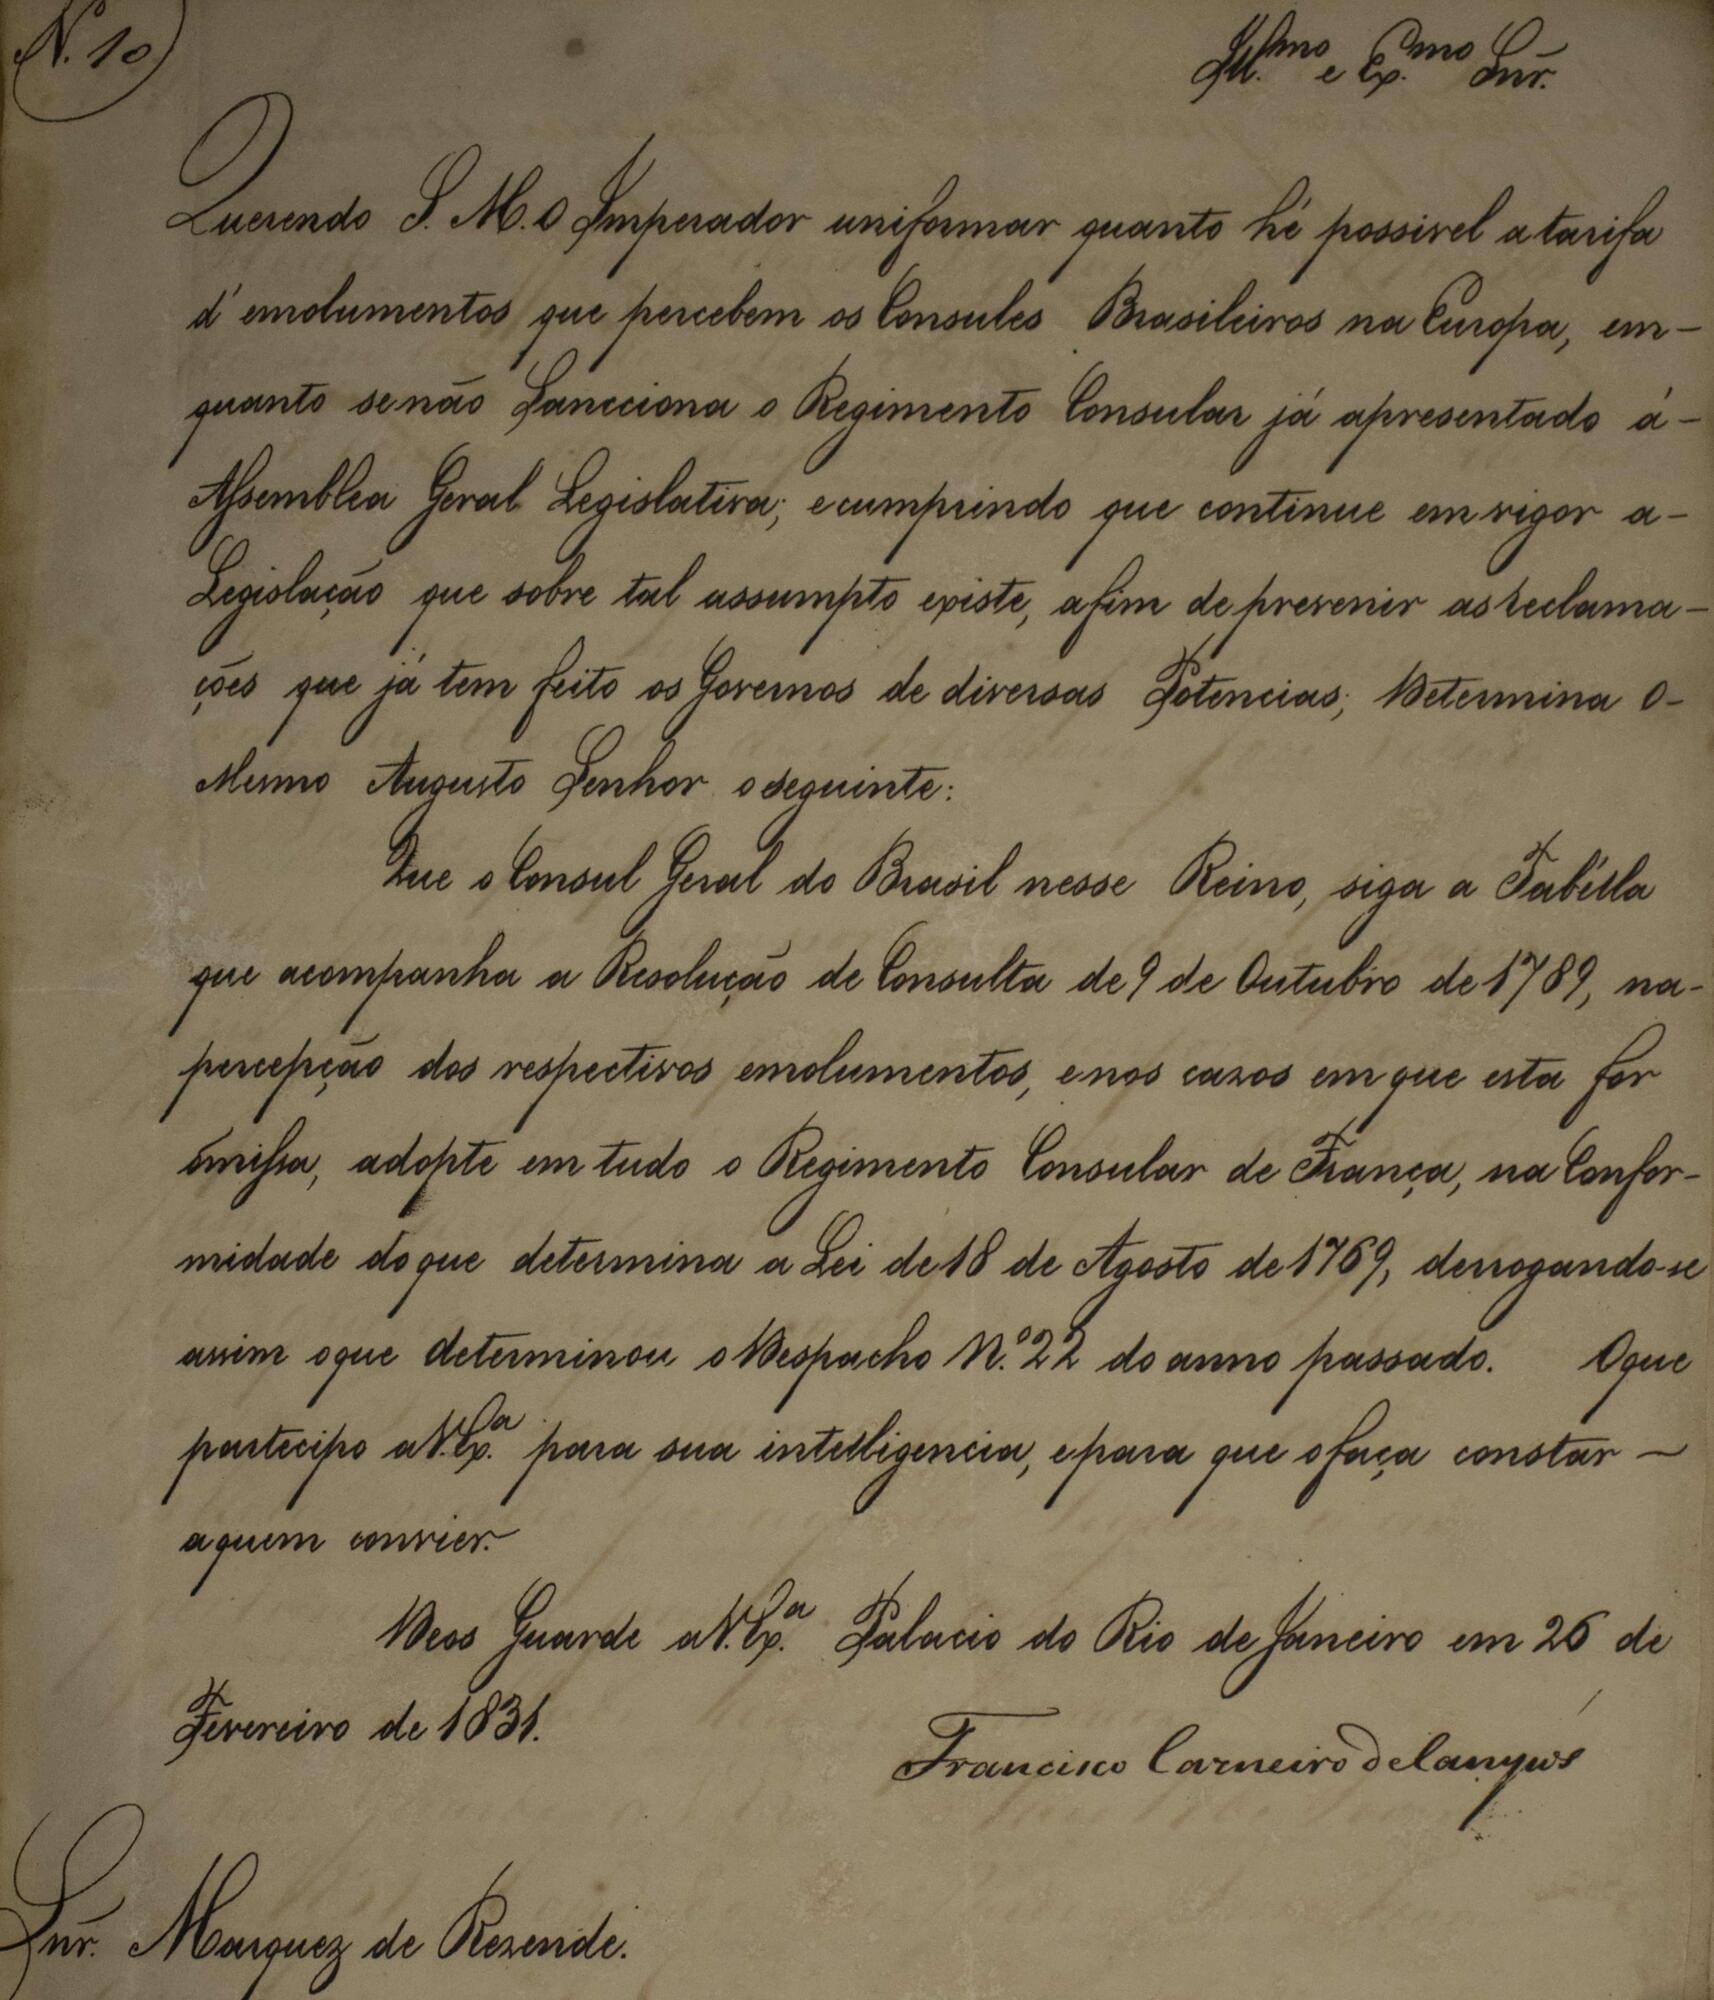 N. 10
Ill.mo e Ex.mo Snr.
Querendo S. M. O Imperador uniformar quanto hé possivel a tarifa
d'emolumentos que percebem os Consules Brasileiros na Europa, em-
quanto se não Sancciona o Regimento Consular já apresentado á-
Assemblea Geral Legislativa; e cumprindo que continue em vigor a-
Legislação que sobre tal assumpto existe, a fim de prevenir as reclama-
ções que já tem feito os Governos de diversas Potencias; Determina O-
Mesmo Augusto Senhor o seguinte:
Que o Consul Geral do Brasil nesse Reino, siga a Tabélla
que acompanha a Resolução de Consulta de 9 de Outubro de 1789, na-
percepção dos respectivos emolumentos, e nos cazos em que esta for
omissa, adopte em tudo o Regimento Consular de França, na Confor-
midade do que determina a Lei de 18 de Agosto de 1769, derrogando-se
assim o que determinou o Despacho N.º 22 do anno passado. O que
partecipo a V. Ex.a para sua intelligencia, e para que o faça constar -
a quem convier.
Deos Guarde a V. Ex.a Palacio do Rio de Janeiro em 26 de
Fevereiro de 1831.
Francisco Carneiro de Campos
Snr. Marquez de Rezende.